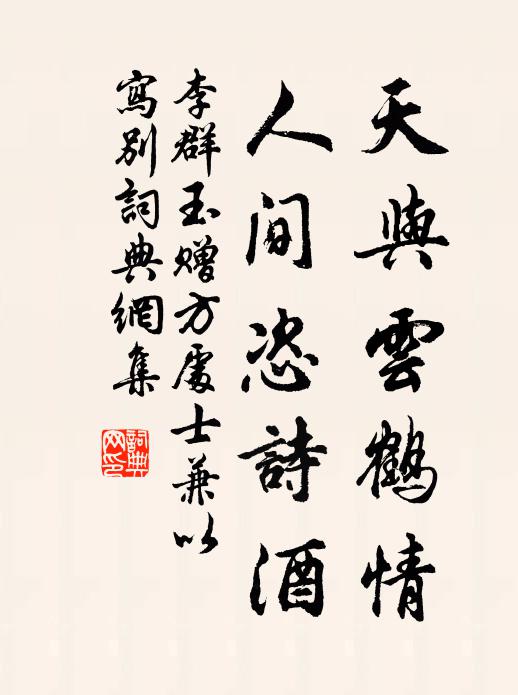 天與雲鶴情
人間恣詩酒
李群玉贈方處士兼以
寫別詞典網集
詞典
网印